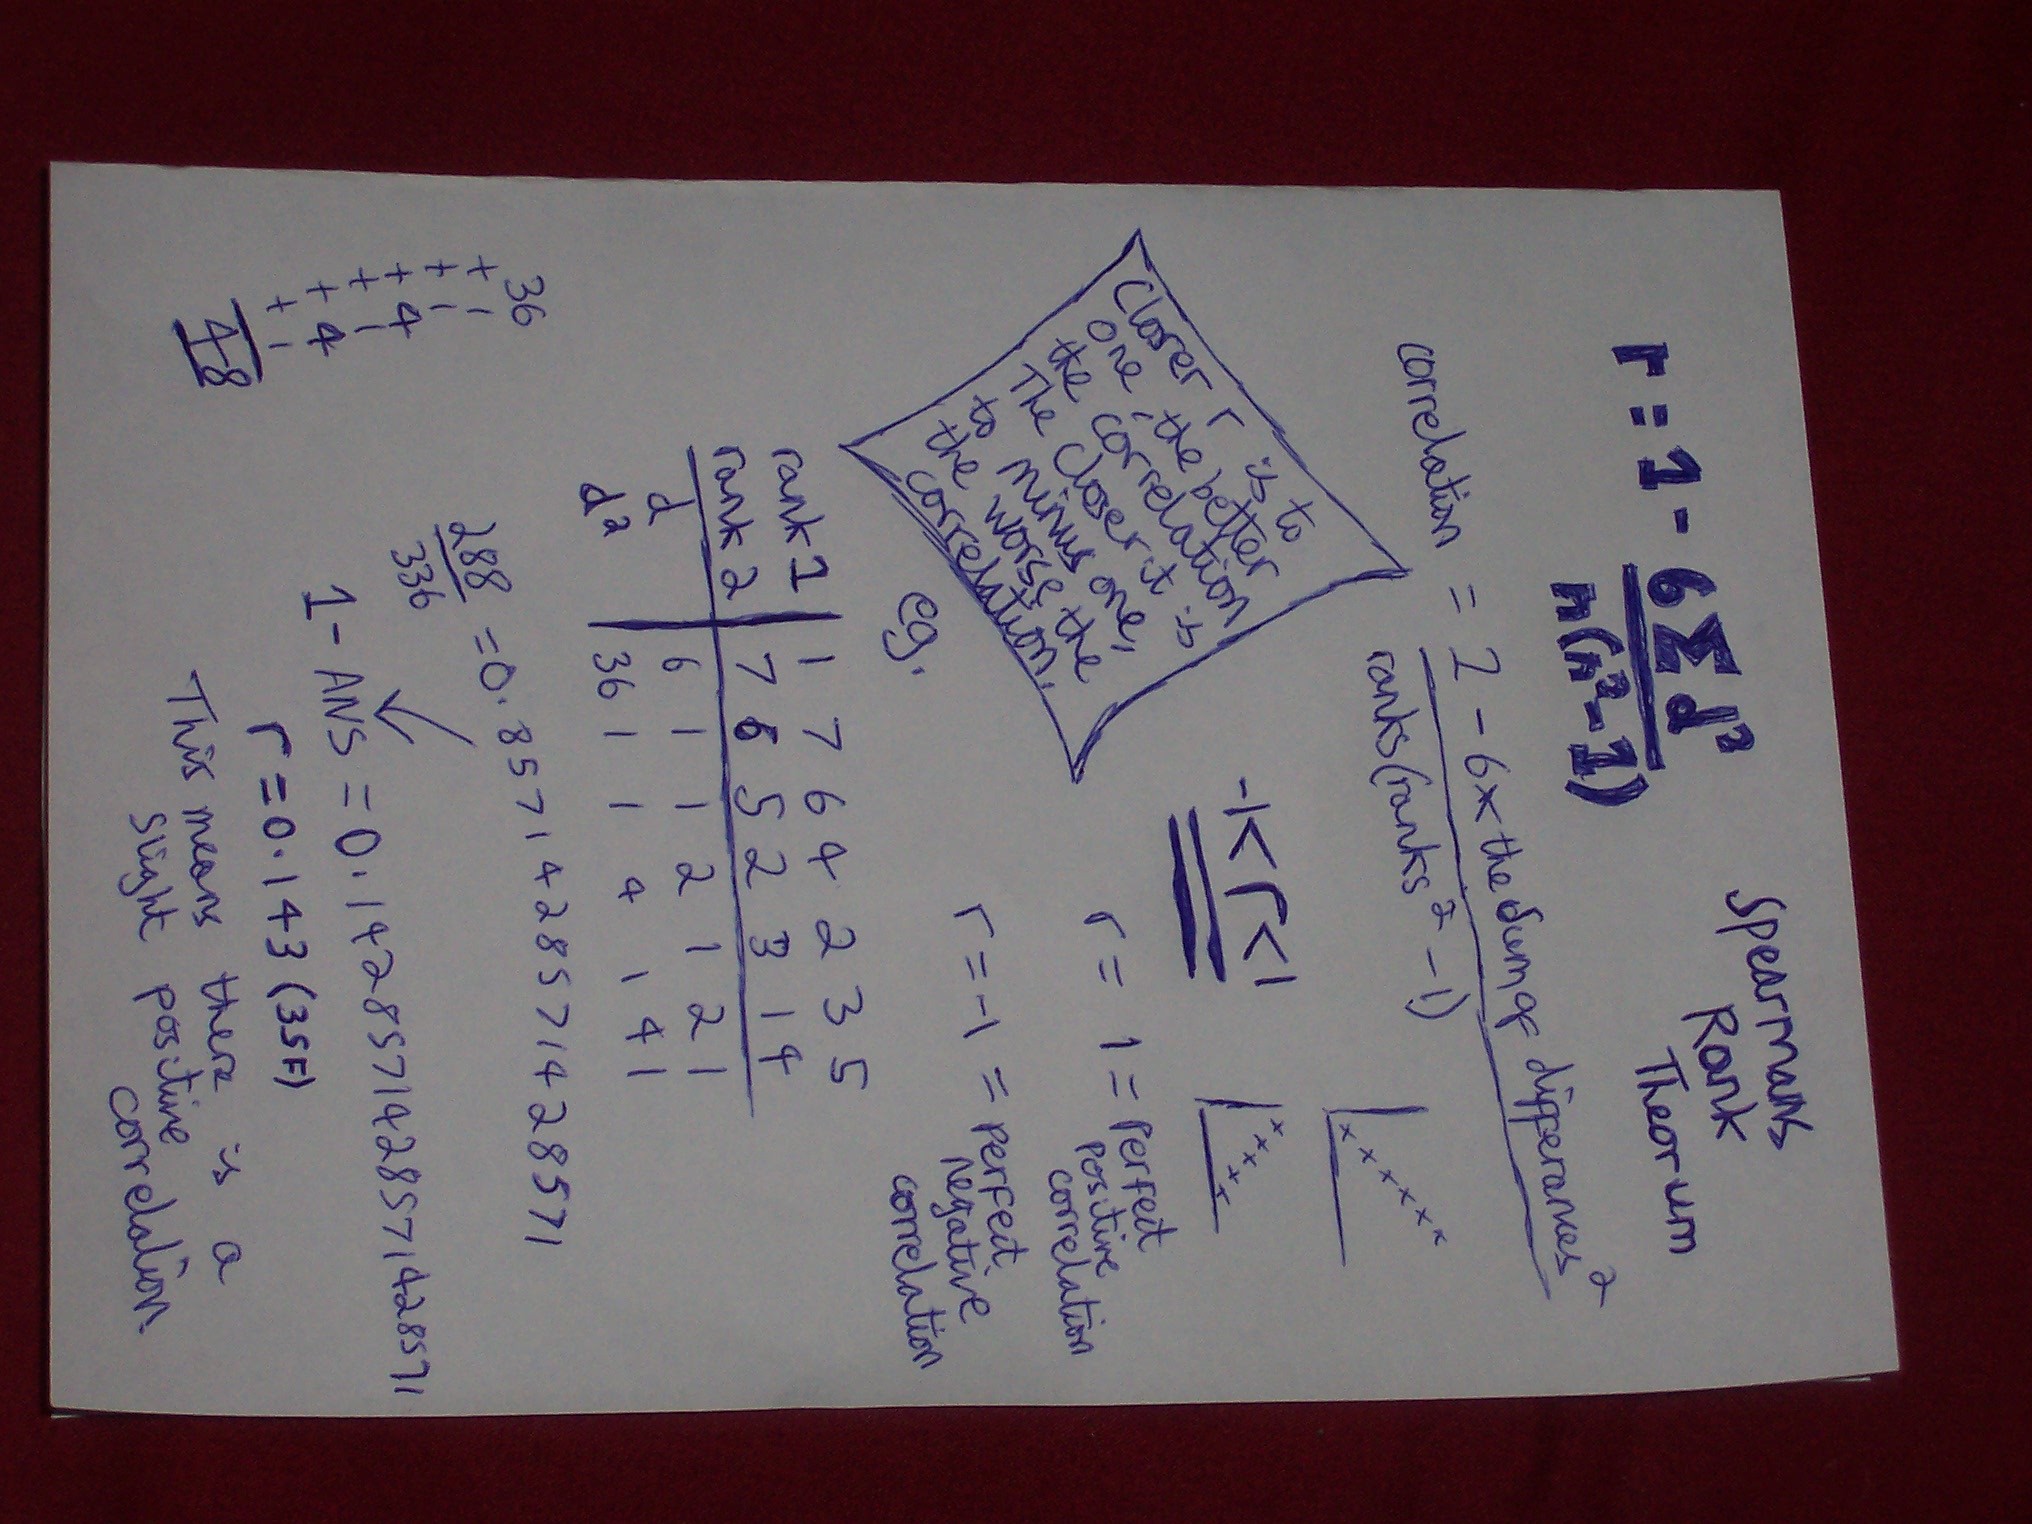 Spearmans
Rank
Theorum
r = 1 - 6Σd²
n(n²-1)
correlation = 2 - 6x the sum of differances²
ranks(ranks² - 1)
Closer r is to
one, the better
the correlation
The closer it is
to minus one,
the worse the
correlation.
-1<r<1
r = 1 = Perfect
Positive
correlation
r = -1 = Perfect
Negative
correlation
eg.
rank 1 1 7 6 4 2 3 5
rank 2 7 6 5 2 3 1 4
d 6 1 1 2 1 2 1
d² 36 1 1 4 1 4 1
36
+ 1
+ 1
+ 4
+ 1
+ 4
+ 1
48
288
336
= 0.857142857142857 1
1 - ANS = 0.142857142857142857 1
r = 0.143 (3SF)
This means there is a
slight positive
correlation